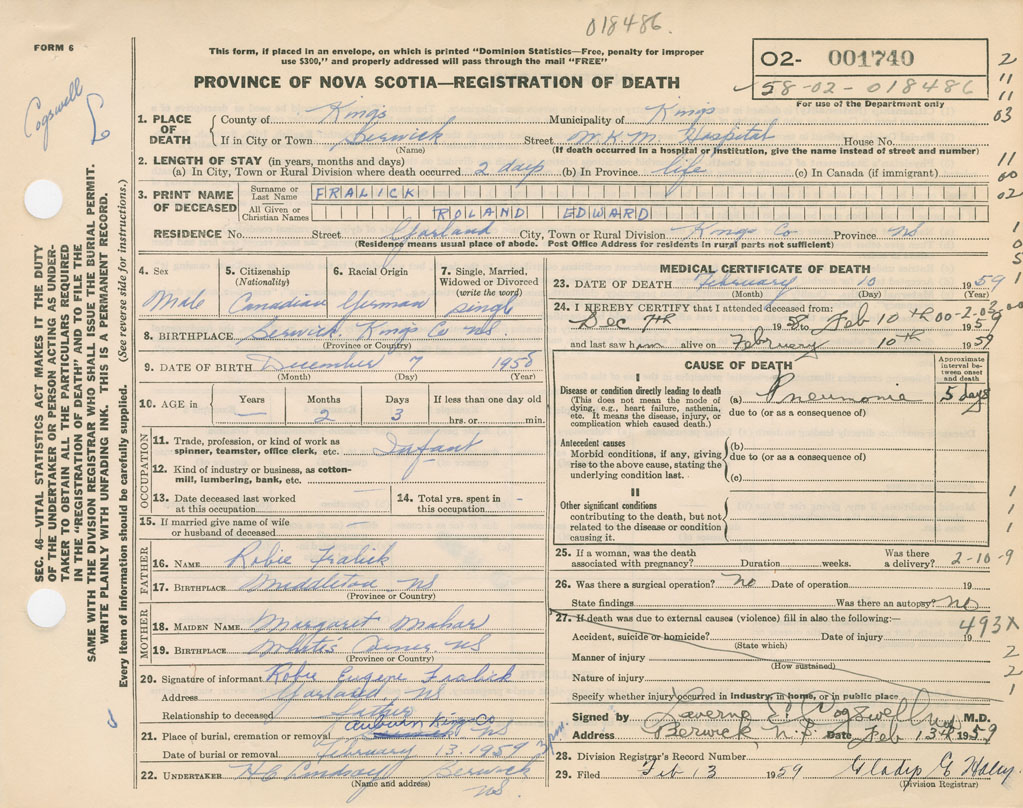 018486.
FORM 6
This form, if placed in an envelope, on which is printed "Dominion Statistics—Free, penalty for improper
use $300," and properly addressed will pass through the mail "FREE"
02- 001740
58-02-018486
For use of the Department only
PROVINCE OF NOVA SCOTIA—REGISTRATION OF DEATH
Cogswell
SEC. 46—VITAL STATISTICS ACT MAKES IT THE DUTY
OF THE UNDERTAKER OR PERSON ACTING AS UNDER-
TAKER TO OBTAIN ALL THE PARTICULARS REQUIRED
IN THE "REGISTRATION OF DEATH" AND TO FILE THE
SAME WITH THE DIVISION REGISTRAR WHO SHALL ISSUE THE BURIAL PERMIT.
WRITE PLAINLY WITH UNFADING INK. THIS IS A PERMANENT RECORD.
Every item of information should be carefully supplied. (See reverse side for instructions.)
1. PLACE OF DEATH County of Kings Municipality of Kings
If in City or Town Berwick Street W.K.M. Hospital House No.
(Name) (If death occurred in a hospital or institution, give the name instead of street and number)
2. LENGTH OF STAY (in years, months and days)
(a) In City, Town or Rural Division where death occurred 2 days (b) In Province life (c) In Canada (if immigrant)
3. PRINT NAME OF DECEASED Surname or Last Name FRALICK
All Given or Christian Names ROLAND EDWARD
RESIDENCE No. Street Garland City, Town or Rural Division Kings Co Province NS
(Residence means usual place of abode. Post Office Address for residents in rural parts not sufficient)
4. Sex Male
5. Citizenship (Nationality) Canadian
6. Racial Origin German
7. Single, Married, Widowed or Divorced (write the word) single
8. BIRTHPLACE Berwick, Kings Co NS.
(Province or Country)
9. DATE OF BIRTH December 7 1958
(Month) (Day) (Year)
10. AGE in Years Months Days If less than one day old
— 2 3 hrs. or min.
OCCUPATION
11. Trade, profession, or kind of work as spinner, teamster, office clerk, etc. Infant
12. Kind of industry or business, as cotton-mill, lumbering, bank, etc. —
13. Date deceased last worked at this occupation —
14. Total yrs. spent in this occupation -
15. If married give name of wife or husband of deceased —
FATHER
16. NAME Robie Fralick
17. BIRTHPLACE Middleton NS
(Province or Country)
MOTHER
18. MAIDEN NAME Margaret Mahar
19. BIRTHPLACE NS
(Province or Country)
20. Signature of informant Robie Eugene Fralick
Address Garland, NS
Relationship to deceased father
21. Place of burial, cremation or removal Auburn Kings Co NS
Date of burial or removal February 13. 1959
22. UNDERTAKER H C Lindsay Berwick NS
(Name and address)
MEDICAL CERTIFICATE OF DEATH
23. DATE OF DEATH February 10 1959
(Month) (Day) (Year)
24. I HEREBY CERTIFY that I attended deceased from:
Dec 7th 1958 to Feb 10th 1959
and last saw him alive on February 10th 1959
CAUSE OF DEATH
Approximate interval between onset and death
I
Disease or condition directly leading to death
(This does not mean the mode of dying, e.g., heart failure, asthenia, etc. It means the disease, injury, or complication which caused death.)
(a) Pneumonia 5 days
due to (or as a consequence of)
Antecedent causes
Morbid conditions, if any, giving rise to the above cause, stating the underlying condition last.
(b)
due to (or as a consequence of)
(c)
II
Other significant conditions
contributing to the death, but not related to the disease or condition causing it.
25. If a woman, was the death associated with pregnancy? Duration weeks. Was there a delivery? 2-10-9
26. Was there a surgical operation? No Date of operation 19
State findings Was there an autopsy? no
27. If death was due to external causes (violence) fill in also the following:—
493X
Accident, suicide or homicide? Date of injury 19
(State which)
Manner of injury
(How sustained)
Nature of injury
Specify whether injury occurred in industry, in home, or in public place
Signed by Laverne E. Cogswell M.D.
Address Berwick, N.S. Date Feb 13th 1959
28. Division Registrar's Record Number
29. Filed Feb 13 1959 Gladys E Haley.
(Division Registrar)
2
11
11
03
11
00
02
1
0
5
1
1
1
1
2
2
1